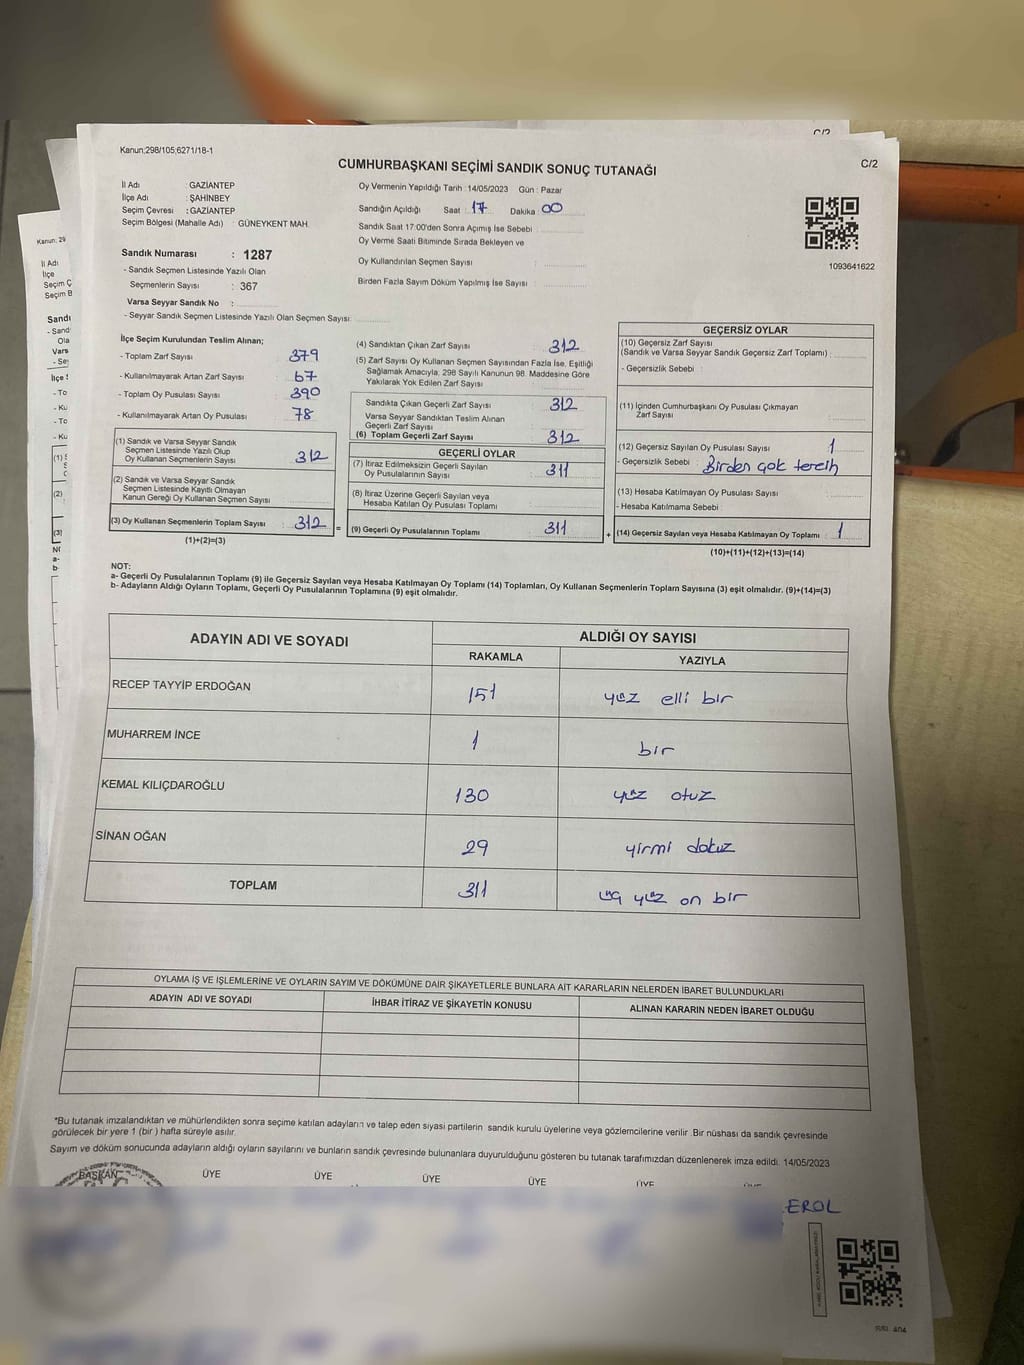 C/2
Kanun;298/105;6271/18-1
C/2
CUMHURBAŞKANI SEÇİMİ SANDIK SONUÇ TUTANAĞI
İl Adı : GAZİANTEP
İlçe Adı : ŞAHİNBEY
Seçim Çevresi : GAZİANTEP
Seçim Bölgesi (Mahalle Adı) : GÜNEYKENT MAH.
Oy Vermenin Yapıldığı Tarih :14/05/2023 Gün : Pazar
Sandığın Açıldığı Saat : 17 Dakika : 00
Sandık Saat 17:00'den Sonra Açımış İse Sebebi :
Oy Verme Saati Bitiminde Sırada Bekleyen ve
Oy Kullandırılan Seçmen Sayısı :
Birden Fazla Sayım Döküm Yapılmış İse Sayısı :
1093641622
Sandık Numarası : 1287
- Sandık Seçmen Listesinde Yazılı Olan
Seçmenlerin Sayısı : 367
Varsa Seyyar Sandık No :
- Seyyar Sandık Seçmen Listesinde Yazılı Olan Seçmen Sayısı:
İlçe Seçim Kurulundan Teslim Alınan;
- Toplam Zarf Sayısı : 379
- Kullanılmayarak Artan Zarf Sayısı : 67
- Toplam Oy Pusulası Sayısı : 390
- Kullanılmayarak Artan Oy Pusulası : 78
(1) Sandık ve Varsa Seyyar Sandık
Seçmen Listesinde Yazılı Olup
Oy Kullanan Seçmenlerin Sayısı : 312
(2) Sandık ve Varsa Seyyar Sandık
Seçmen Listesinde Kayıtlı Olmayan
Kanun Gereği Oy Kullanan Seçmen Sayısı :
(3) Oy Kullanan Seçmenlerin Toplam Sayısı : 312 =
(1)+(2)=(3)
(4) Sandıktan Çıkan Zarf Sayısı : 312
(5) Zarf Sayısı Oy Kullanan Seçmen Sayısından Fazla İse, Eşitliği
Sağlamak Amacıyla, 298 Sayılı Kanunun 98. Maddesine Göre
Yakılarak Yok Edilen Zarf Sayısı :
Sandıkta Çıkan Geçerli Zarf Sayısı : 312
Varsa Seyyar Sandıktan Teslim Alınan
Geçerli Zarf Sayısı :
(6) Toplam Geçerli Zarf Sayısı : 312
GEÇERLİ OYLAR
(7) İtiraz Edilmeksizin Geçerli Sayılan
Oy Pusulalarının Sayısı : 311
(8) İtiraz Üzerine Geçerli Sayılan veya
Hesaba Katılan Oy Pusulaları Toplamı :
(9) Geçerli Oy Pusulalarının Toplamı : 311 +
GEÇERSİZ OYLAR
(10) Geçersiz Zarf Sayısı
(Sandık ve Varsa Seyyar Sandık Geçersiz Zarf Toplamı) :
- Geçersizlik Sebebi :
(11) İçinden Cumhurbaşkanı Oy Pusulası Çıkmayan
Zarf Sayısı :
(12) Geçersiz Sayılan Oy Pusulası Sayısı : 1
- Geçersizlik Sebebi : Birden çok tercih
(13) Hesaba Katılmayan Oy Pusulası Sayısı :
- Hesaba Katılmama Sebebi :
(14) Geçersiz Sayılan veya Hesaba Katılmayan Oy Toplamı : 1
(10)+(11)+(12)+(13)=(14)
NOT:
a- Geçerli Oy Pusulalarının Toplamı (9) ile Geçersiz Sayılan veya Hesaba Katılmayan Oy Toplamı (14) Toplamları, Oy Kullanan Seçmenlerin Toplam Sayısına (3) eşit olmalıdır. (9)+(14)=(3)
b- Adayların Aldığı Oyların Toplamı, Geçerli Oy Pusulalarının Toplamına (9) eşit olmalıdır.
ADAYIN ADI VE SOYADI ALDIĞI OY SAYISI
RAKAMLA YAZIYLA
RECEP TAYYİP ERDOĞAN 151 yüz elli bir
MUHARREM İNCE 1 bir
KEMAL KILIÇDAROĞLU 130 yüz otuz
SİNAN OĞAN 29 yirmi dokuz
TOPLAM 311 üç yüz on bir
OYLAMA İŞ VE İŞLEMLERİNE VE OYLARIN SAYIM VE DÖKÜMÜNE DAİR ŞİKAYETLERLE BUNLARA AİT KARARLARIN NELERDEN İBARET BULUNDUKLARI
ADAYIN ADI VE SOYADI İHBAR İTİRAZ VE ŞİKAYETİN KONUSU ALINAN KARARIN NEDEN İBARET OLDUĞU
*Bu tutanak imzalandıktan ve mühürlendikten sonra seçime katılan adayların ve talep eden siyasi partilerin sandık kurulu üyelerine veya gözlemcilerine verilir .Bir nüshası da sandık çevresinde
görülecek bir yere 1 (bir ) hafta süreyle asılır.
Sayım ve döküm sonucunda adayların aldığı oyların sayılarını ve bunların sandık çevresinde bulunanlara duyurulduğunu gösteren bu tutanak tarafımızdan düzenlenerek imza edildi. 14/05/2023
BAŞKAN ÜYE ÜYE ÜYE ÜYE ÜYE ÜYE
EROL